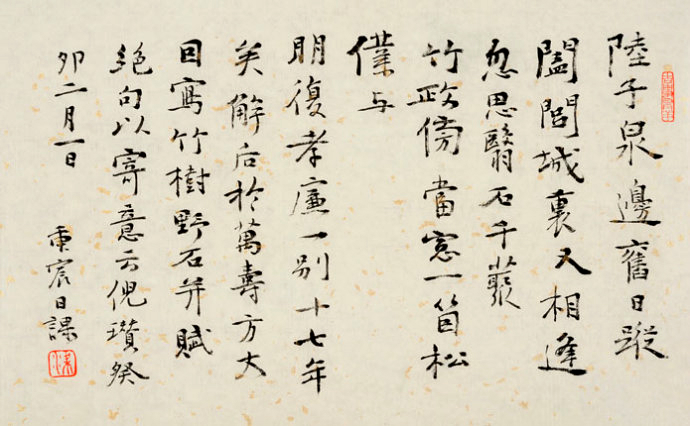 陸子泉邊舊日蹤
闔閭城裏又相逢
忽思翳石千叢
竹政傍當窓一箇松
僕与
朋復孝廉一别十七年
矣解后於萬壽方丈
因寫竹樹野石并賦
絶句以寄意云倪瓚癸
卯二月一日
宸日課